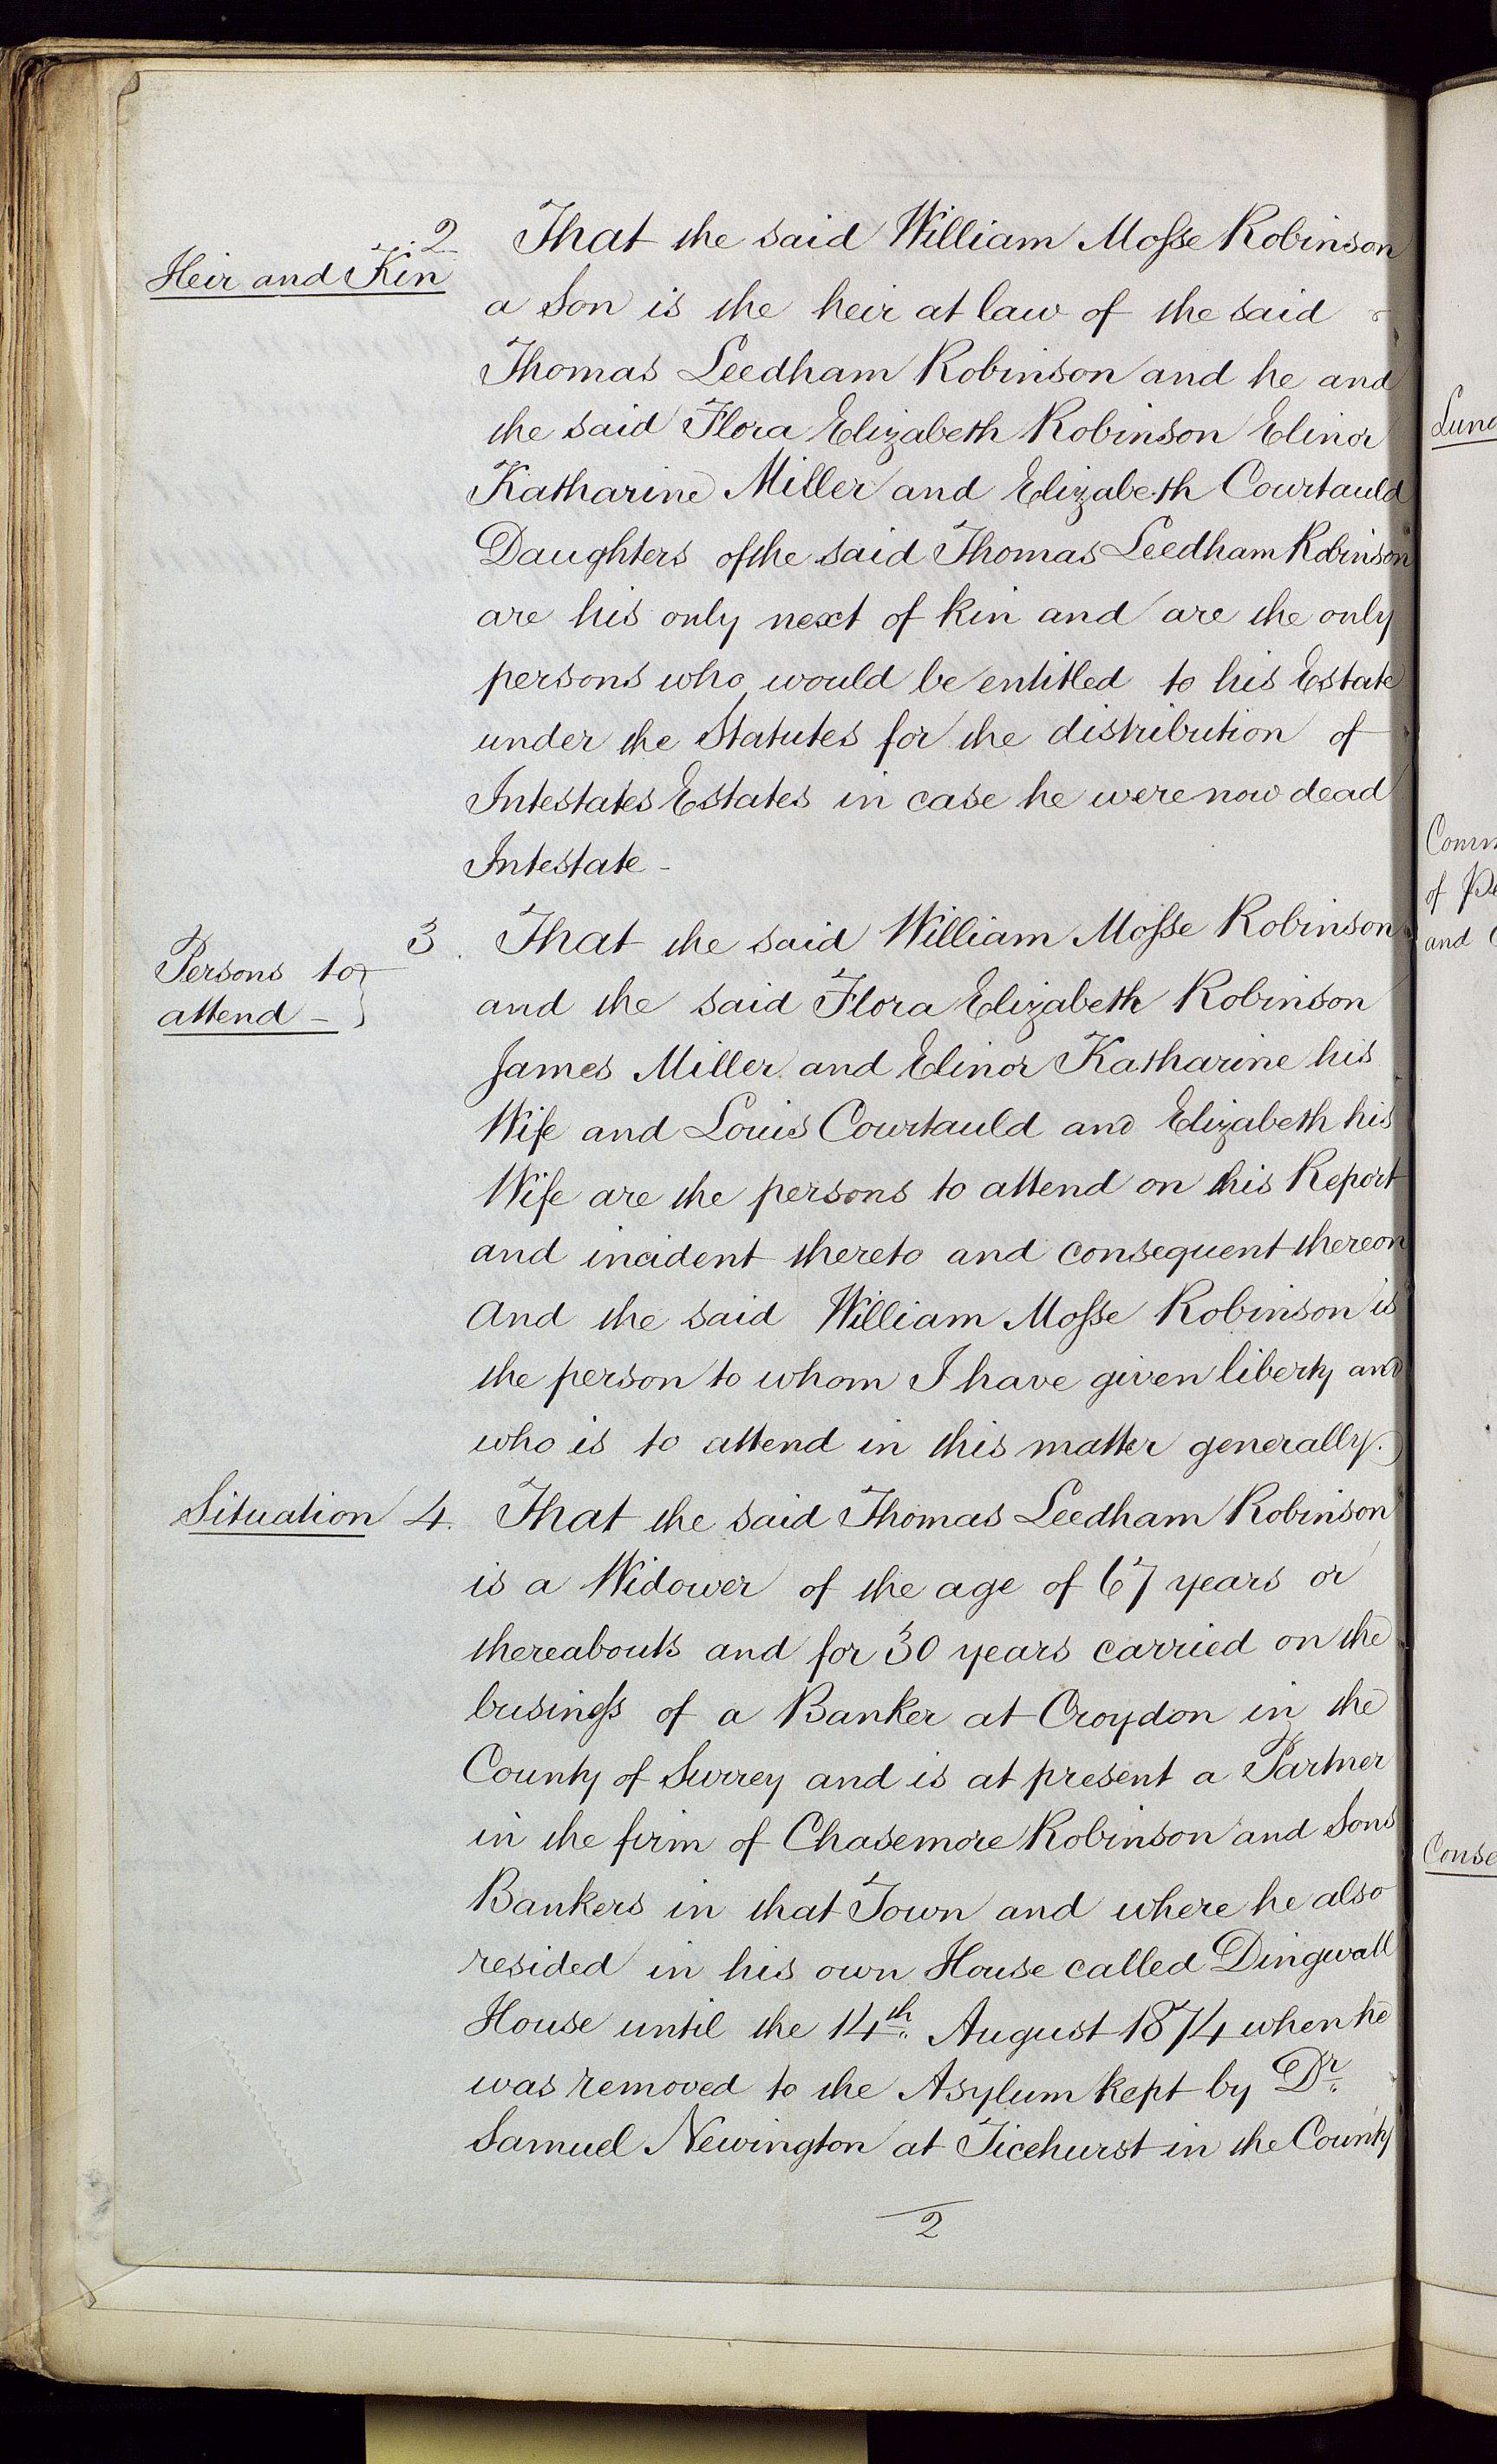 2 That the said William Mosse Robinson
Heir and Kin
a Son is the heir at law of the said
Thomas Leedham Robinson and he and
the said Flora Elizabeth Robinson Elinor
Katharine Miller and Elizabeth Courtauld
Daughters of the said Thomas Leedham Robinson
are his only next of kin and are the only
persons who would be entitled to his Estate
under the Statutes for the distribution of
Intestates Estates in case he were now dead
Intestate -
3. That the said William Mosse Robinson
Persons to
attend -
and the said Flora Elizabeth Robinson
James Miller and Elinor Katharine his
Wife and Louis Courtauld and Elizabeth his
Wife are the persons to attend on this Report
and incident thereto and consequent thereon
And the said William Mosse Robinson is
the person to whom I have given liberty and
who is to attend in this matter generally.
Situation 4. That the said Thomas Leedham Robinson
is a Widower of the age of 67 years or
thereabouts and for 30 years carried on the
business of a Banker at Croydon in the
County of Surrey and is at present a Partner
in the firm of Chasemore Robinson and Sons
Bankers in that Town and where he also
resided in his own House called Dingwall
House until the 14th August 1874 when he
was removed to the Asylum kept by Dr.
Samuel Newington at Ticehurst in the County
2
Luna
Comm
of Pe
and
Conse